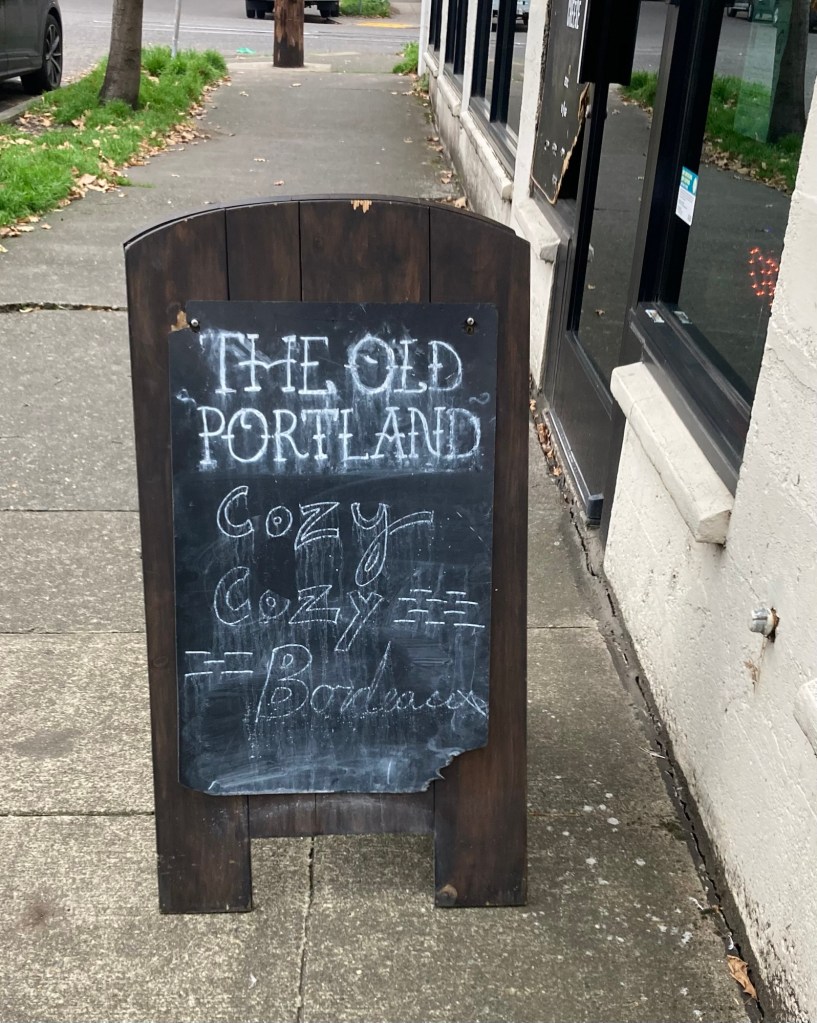 THE OLD
PORTLAND
Cozy
Cozy
Bordeaux